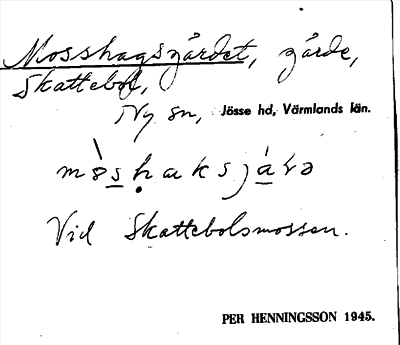 Mosshagsgärdet, gärde,
Skattebol,
Ny sn, Jösse hd, Värmlands län.
Vid Skattebolsmossen.
PER HENNINGSSON 1945.